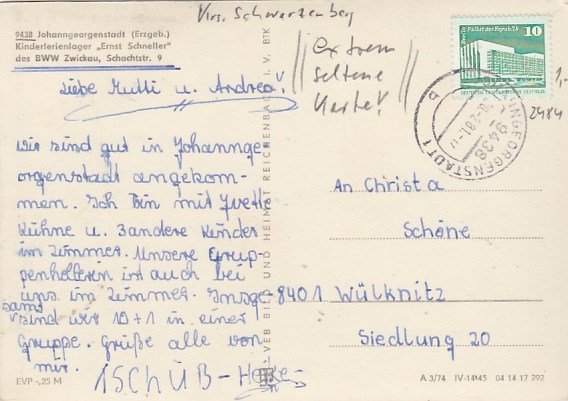 Krs. Schwarzenberg
9438 Johanngeorgenstadt (Erzgeb.)
Kinderferienlager „Ernst Schneller"
des BWW Zwickau, Schachtstr. 9
extrem
seltene
Karte!
10
Palast der Republik
1,-
2484
9438
JOHANNGEORGENSTADT 1
Liebe Mutti u. Andrea!
Wir sind gut in Johannge-
orgenstadt angekom-
men. Ich bin mit Yvette
Kühne u. 3 andere Kinder
im Zimmer. Unsere Grup-
penhelferin ist auch bei
uns im Zimmer. Insge-
samt
sind wir 10+1 in einer
Gruppe. Grüße alle von
mir.
TSCHÜß - Heike -
An Christa
Schöne
8401 Wülknitz
Siedlung 20
VEB BILD UND HEIMAT REICHENBACH I. V. BTK
EVP -,25 M
A 3/74 IV-14-45 04 14 17 292